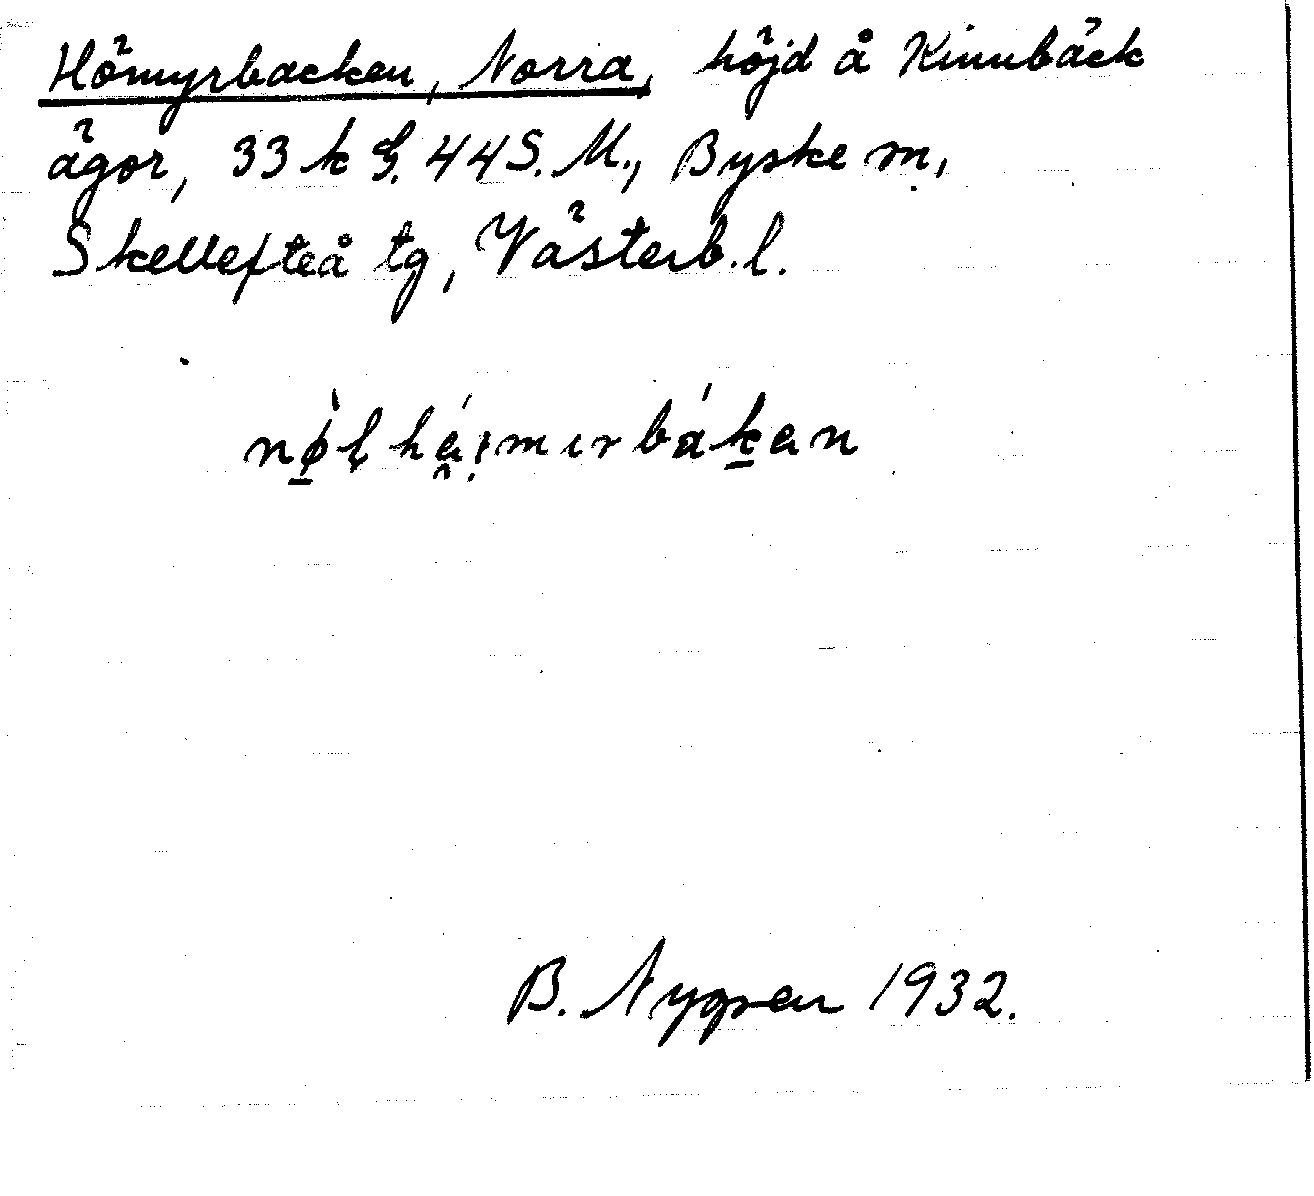 Hömyrbacken, Norra, höjd å Kinnbäck
ägor, 33 k G. 44 S. M., Byske m,
Skellefteå tg, Västerb. l.
B. Nygren 1932.